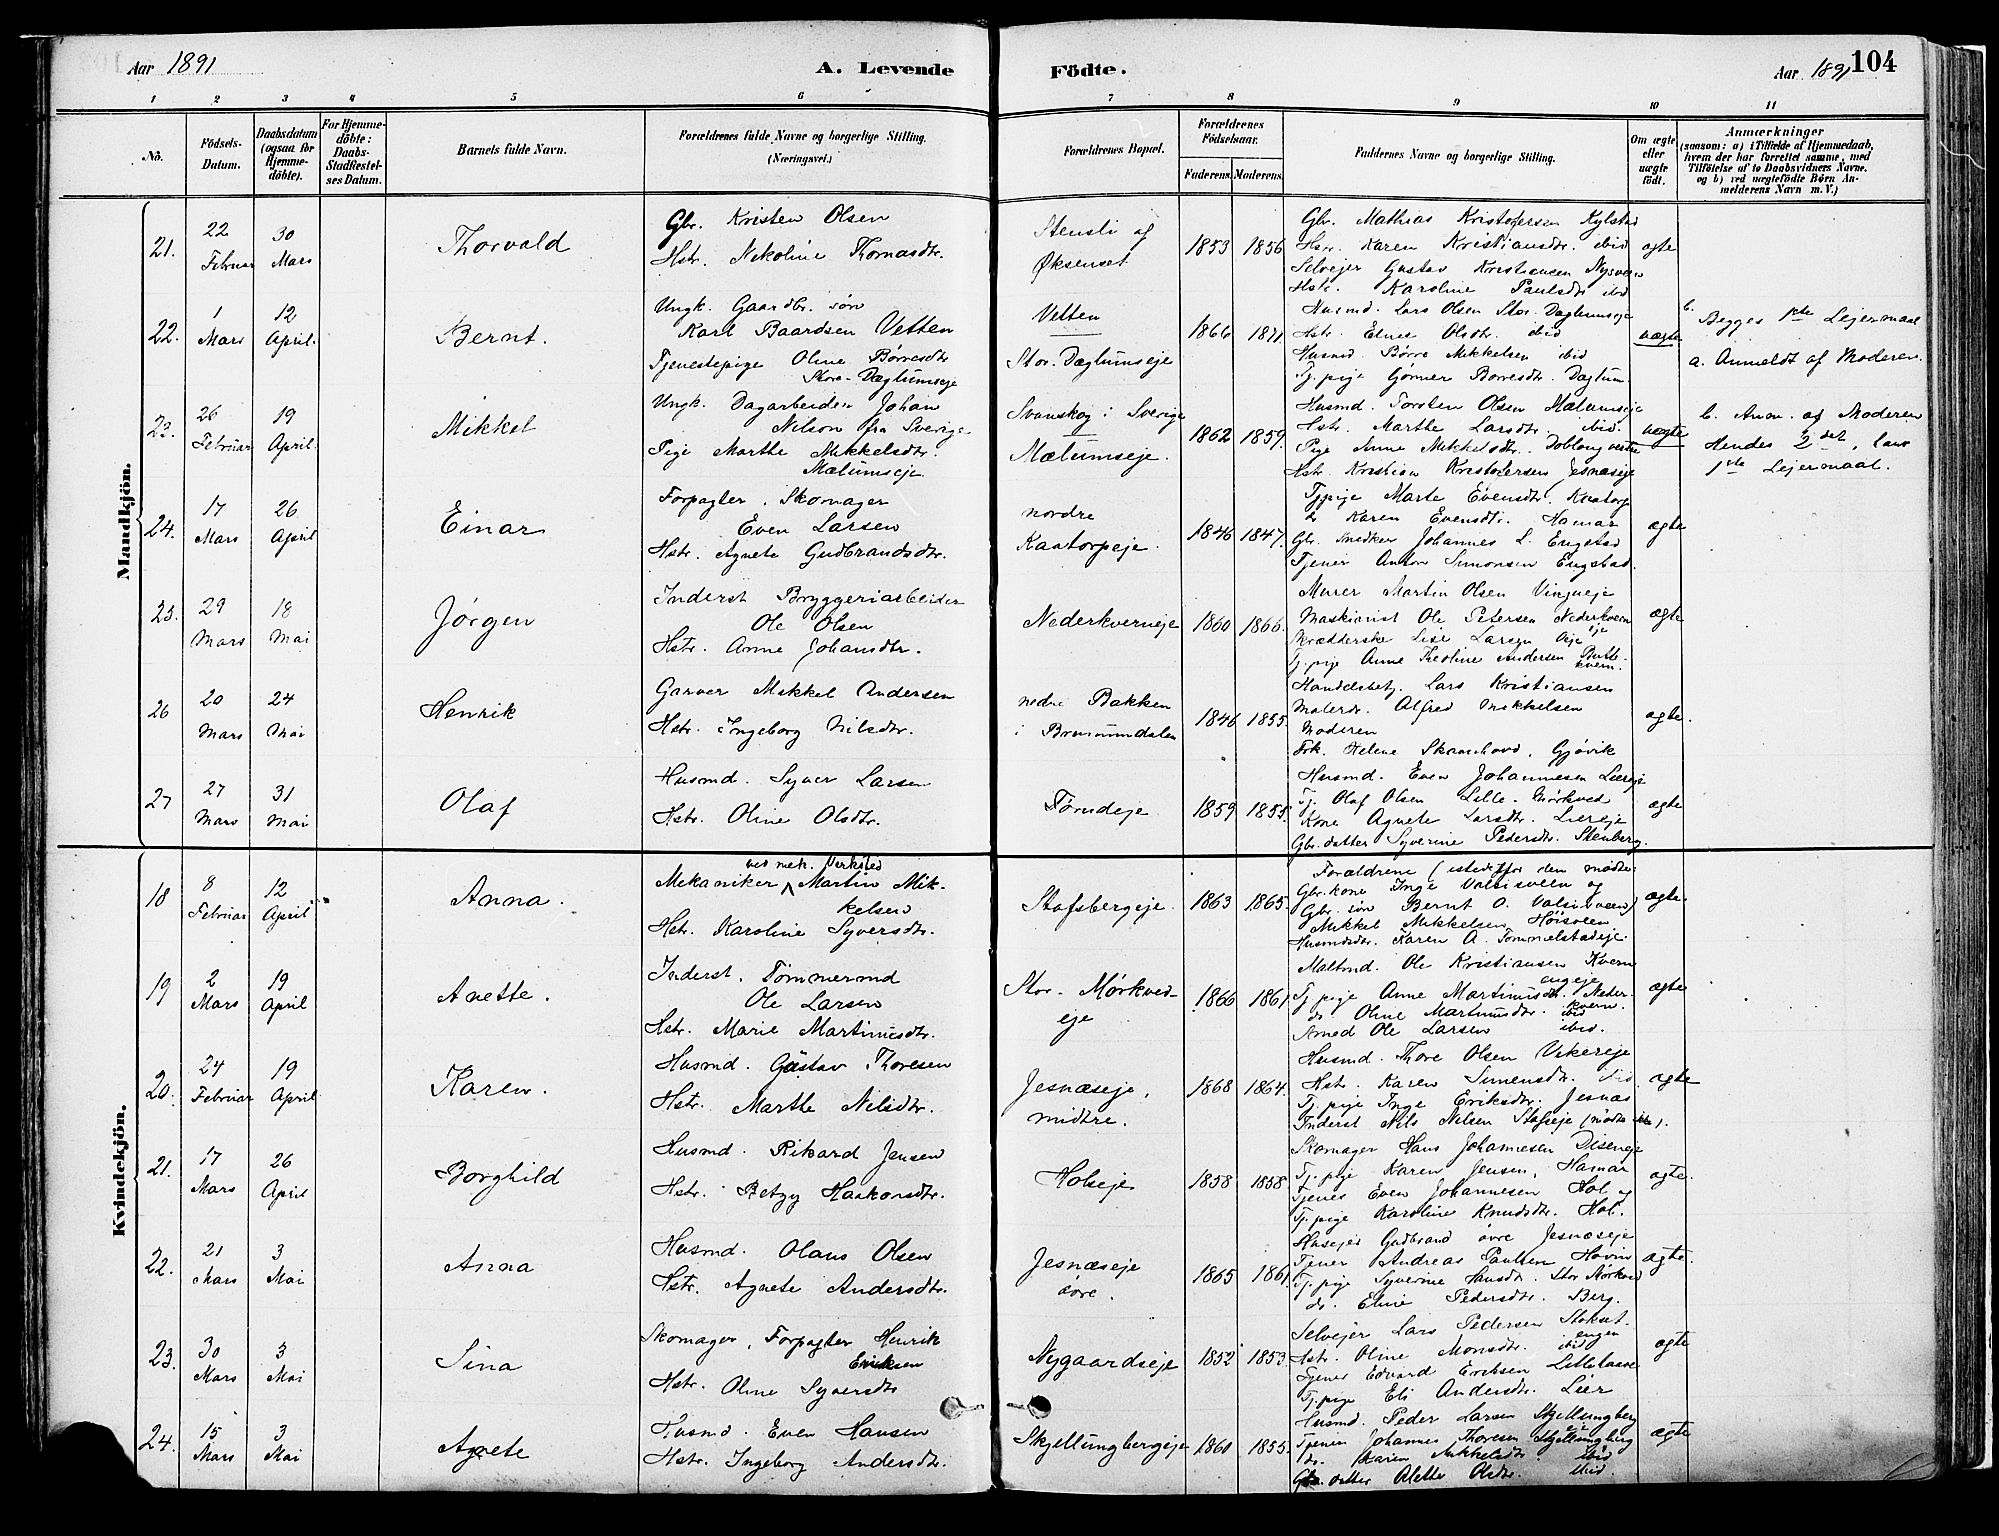 Aar 1891
A. Levende
Födte.
Aar 1891
104
1 2 3 4 5 6 7 8 9 10 11
No.
Födsels-Datum.
Daabsdatum (ogsaa for Hjemmedöbte).
For Hjemmedöbte: Daabs-Stadfæstelses Datum.
Barnets fulde Navn.
Forældrenes fulde Navne og borgerlige Stilling. (Næringsvei.)
Forældrenes Bopæl.
Forældrenes Födselsaar.
Faderens. Moderens.
Faddernes Navne og borgerlige Stilling.
Om ægte eller uægte födt.
Anmærkninger
(saasom: a) i Tilfælde af Hjemmedaab, hvem der har forrettet samme, med Tilföielse af to Daabsvidners Navne, og b) ved uægtefödte Börn Anmelderens Navn m. V.)
Mandkjön.
21.
22 Februar
30 Mars
Thorvald
Gbr. Kristen Olsen
Hstr. Nikoline Thomasdtr.
Stensli og
Øksenset
1853 1856
Gbr. Mathias Kristofersen Kylstad
Hstr. Karen Kristiansdtr. ibid
Selvejer Gustav Kristiansen
Hstr. Karoline Paulsdtr ibid
ægte
22.
1 Mars
12 April.
Bernt.
Ungk. Gaardbr. søn
Karl Baardsen Vetten
Tjenestepige Oline Børresdtr
Store-Dæglumseje
Vetten
Stor. Dæglumseje
1866 1871
Husmd. Lars Olsen Stor. Daglumseje
Hstr. Eline Olsdtr. ibid
Husmd. Børre Mikkelsen ibid
Tj. pige Gørner Borresdtr. Daglum.
uægte
b. Begges 1ste Lejermaal
a. Anmeldt af Moderen.
23.
26 Februar
19 April.
Mikkel
Ungk. Dagarbeider Johan
Nilson fra Sverige
Pige Marthe Mikkelsdtr.
Mælumseje
Svanskog i Sverige
Mælumseje.
1862 1859.
Husmd. Torsten Olsen Mælumseje
Hstr. Marthe Larsdtr. ibid.
Pige Anne Mikkelsdtr. Doblougvestre
Hstr. Kristian Kristofersen, Jesnæseje
uægte
b. Anm. af Moderen
Hendes 2det, hans
1ste Lejermaal.
24.
17 Mars
26 April
Einar
Forpagter. Skomager
Even Larsen
Hstr. Agnete Gudbrandsdtr.
nordre
Kaatorpeje.
1846 1847.
Tjpige Marte Evensdtr. Kaatorp
ds Karen Evensdtr. Hamar
Gbr. Snedker Johannes L. Engstad
Tjener Anton Simonsen Engstad.
ægte
25.
29 Mars
18 Mai
Jørgen
Inderst Bryggeriarbeider
Ole Olsen
Hstr. Anne Johansdtr.
Nederkverneje
1860 1866.
Murer Martin Olsen Vingneje
Maskinist Ole Petersen Nederkvern
eje
Skrædderske Lise Larsen
Tj. pige Anne Theoline Andersen
ægte
26
20 Mars
24 Mai
Henrik
Garver Mikkel Andersen
Hstr. Ingeborg Nilsdtr.
nedre Bakken
i Brumunddalen
1846 1855.
Handelsbetj. Lars Kristiansen
Malerdr. Alfred Mikkelsen
Moderen
Frk. Helene Skanchovd, Gjøvik
ægte.
27
27 Mars
31 Mai
Olaf
Husmd. Syver Larsen
Hstr. Oline Olsdtr.
Førndeje
1859 1855.
Husmd. Even Johannesen Liereje
Tj. Olaf Olsen Lille. Mørkved
Kone Agnete Larsdtr. Liereje
Gbr. datter Syverine Pedersdtr. Stenberg.
ægte
Kvindekjön.
18
8 Februar
12 April
Anna.
ved mek. Verksted
Mekaniker Martin Mikkelsen
Hstr. Karoline Syversdtr.
Stafsbergeje.
1863 1865.
Forældrene (istedetfor dem mødte:
Gbr. kone Inge Valsisveen og
Gbr. søn Bernt O. Valsisveen)
Mikkel Mikkelsen Høisveen
Husmdsdtr. Karen A. Tommelstadeje.
ægte.
19
2 Mars
19 April
Anette.
Inderst. Tømmermd
Ole Larsen
Hstr. Marie Martinusdtr.
Stor. Mørkved-
eje
1866 1861.
Maltmd. Ole Kristiansen Kvern
engeje
Tj. pige Anne Martinusdtr. Neder-
kvern.
ds Oline Martinusdtr. ibid
Arned Ole Larsen ibid.
ægte
20.
24 Februar
19 April
Karen.
Husmd. Gustav Thoresen
Hstr. Marthe Nilsdtr.
Jesnæseje,
midtre.
1868 1864.
Husmd. Thore Olsen Vikereje
Hstr. Karen Simensdtr. ibid
Tj. pige Inge Eriksdtr. Jesnæs
Inderst Nils Nilsen Stafseje (mødte ikke).
ægte
21.
17 Mars
26 April
Borghild
Husmd. Rikard Jensen
Hstr. Betzy Haakonsdtr.
Holseje
1858 1858
Skomager Hans Johannesen Diseneje
Tj. pige Karen Jensen, Hamar
Tjener Even Johannesen Hol og
Tj. pige Karoline Knudsdtr. Hol.
ægte.
22.
21 Mars
3 Mai
Anna
Husmd. Olaus Olsen
Hstr. Agnete Andersdtr.
Jesnæseje
øvre.
1865 1861.
Husejer Gudbrand øvre Jesnæseje
Tjener Andreas Paulsen Hovin
Tj. pige Syverine Hansdtr. Stor Mørkved
ds. Eline Pedersdtr. Berg.
ægte.
23.
30 Mars
3 Mai
Sina
Skomager, Forpagter Henrik
Eriksen
Hstr. Oline Syversdtr
Nygaardseje
1852 1853.
Selvejer Lars Pedersen Stokset
engen
Hstr. Oline Monsdtr. ibid
Tjener Edvard Eriksen Lillehaave
Tj. pige Eli Andersdtr. Lier
ægte
24.
15 Mars
3 Mai
Agnete
Husmd. Even Hansen
Hstr. Ingeborg Andersdtr.
Skjellungbergeje
1860 1855.
Husmd. Peder Larsen Skjellungberg
eje
Tjener Johannes Thoresen Skjellungberg
ds. Karen Mikkelsdtr. ibid
Gbr. datter Alette Olsdtr. ibid.
ægte